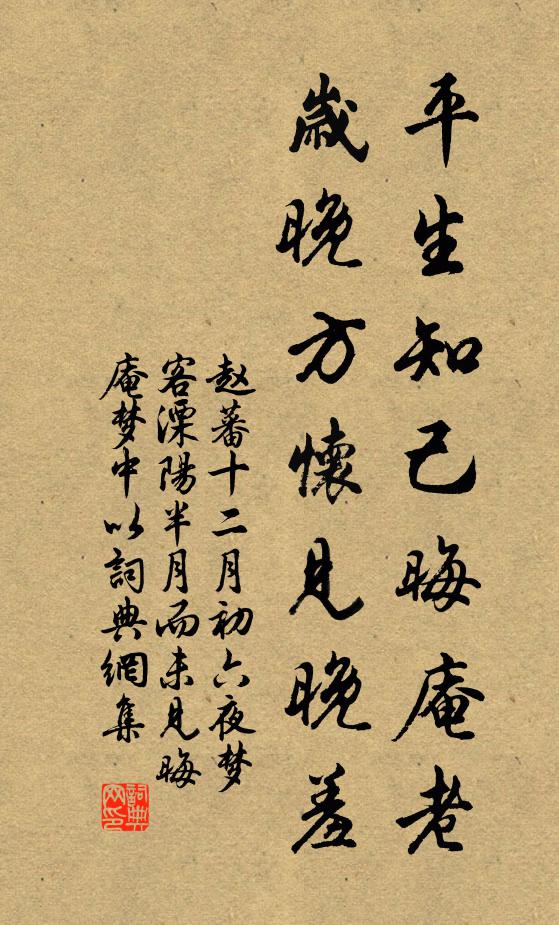 平生知己晦庵老
歲晚方懷見晚羞
赵蕃十二月初六夜梦
客溧陽半月而未見晦
庵梦中以詞典網集
詞典网印